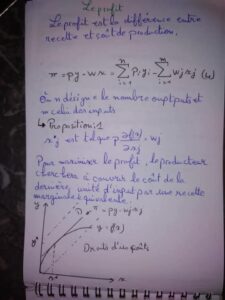 Le profit
Le profit est la différence entre
recette et coût de production.
π = py - wx = Σ Pi yi - Σ wj xj
Où n désigne le nombre outputs et
m celui des inputs
↳ Proposition: 1
x*j est tel que p ∂f(x)/∂xj = wj
Pour maximiser le profit, le producteur
cherchera à couvrir le coût de la
dernière unité d'input par une recette
marginale équivalente.
y
D
π = py - wj xj
y = f(x)
y*
Droits d'isoprofits
x*
x